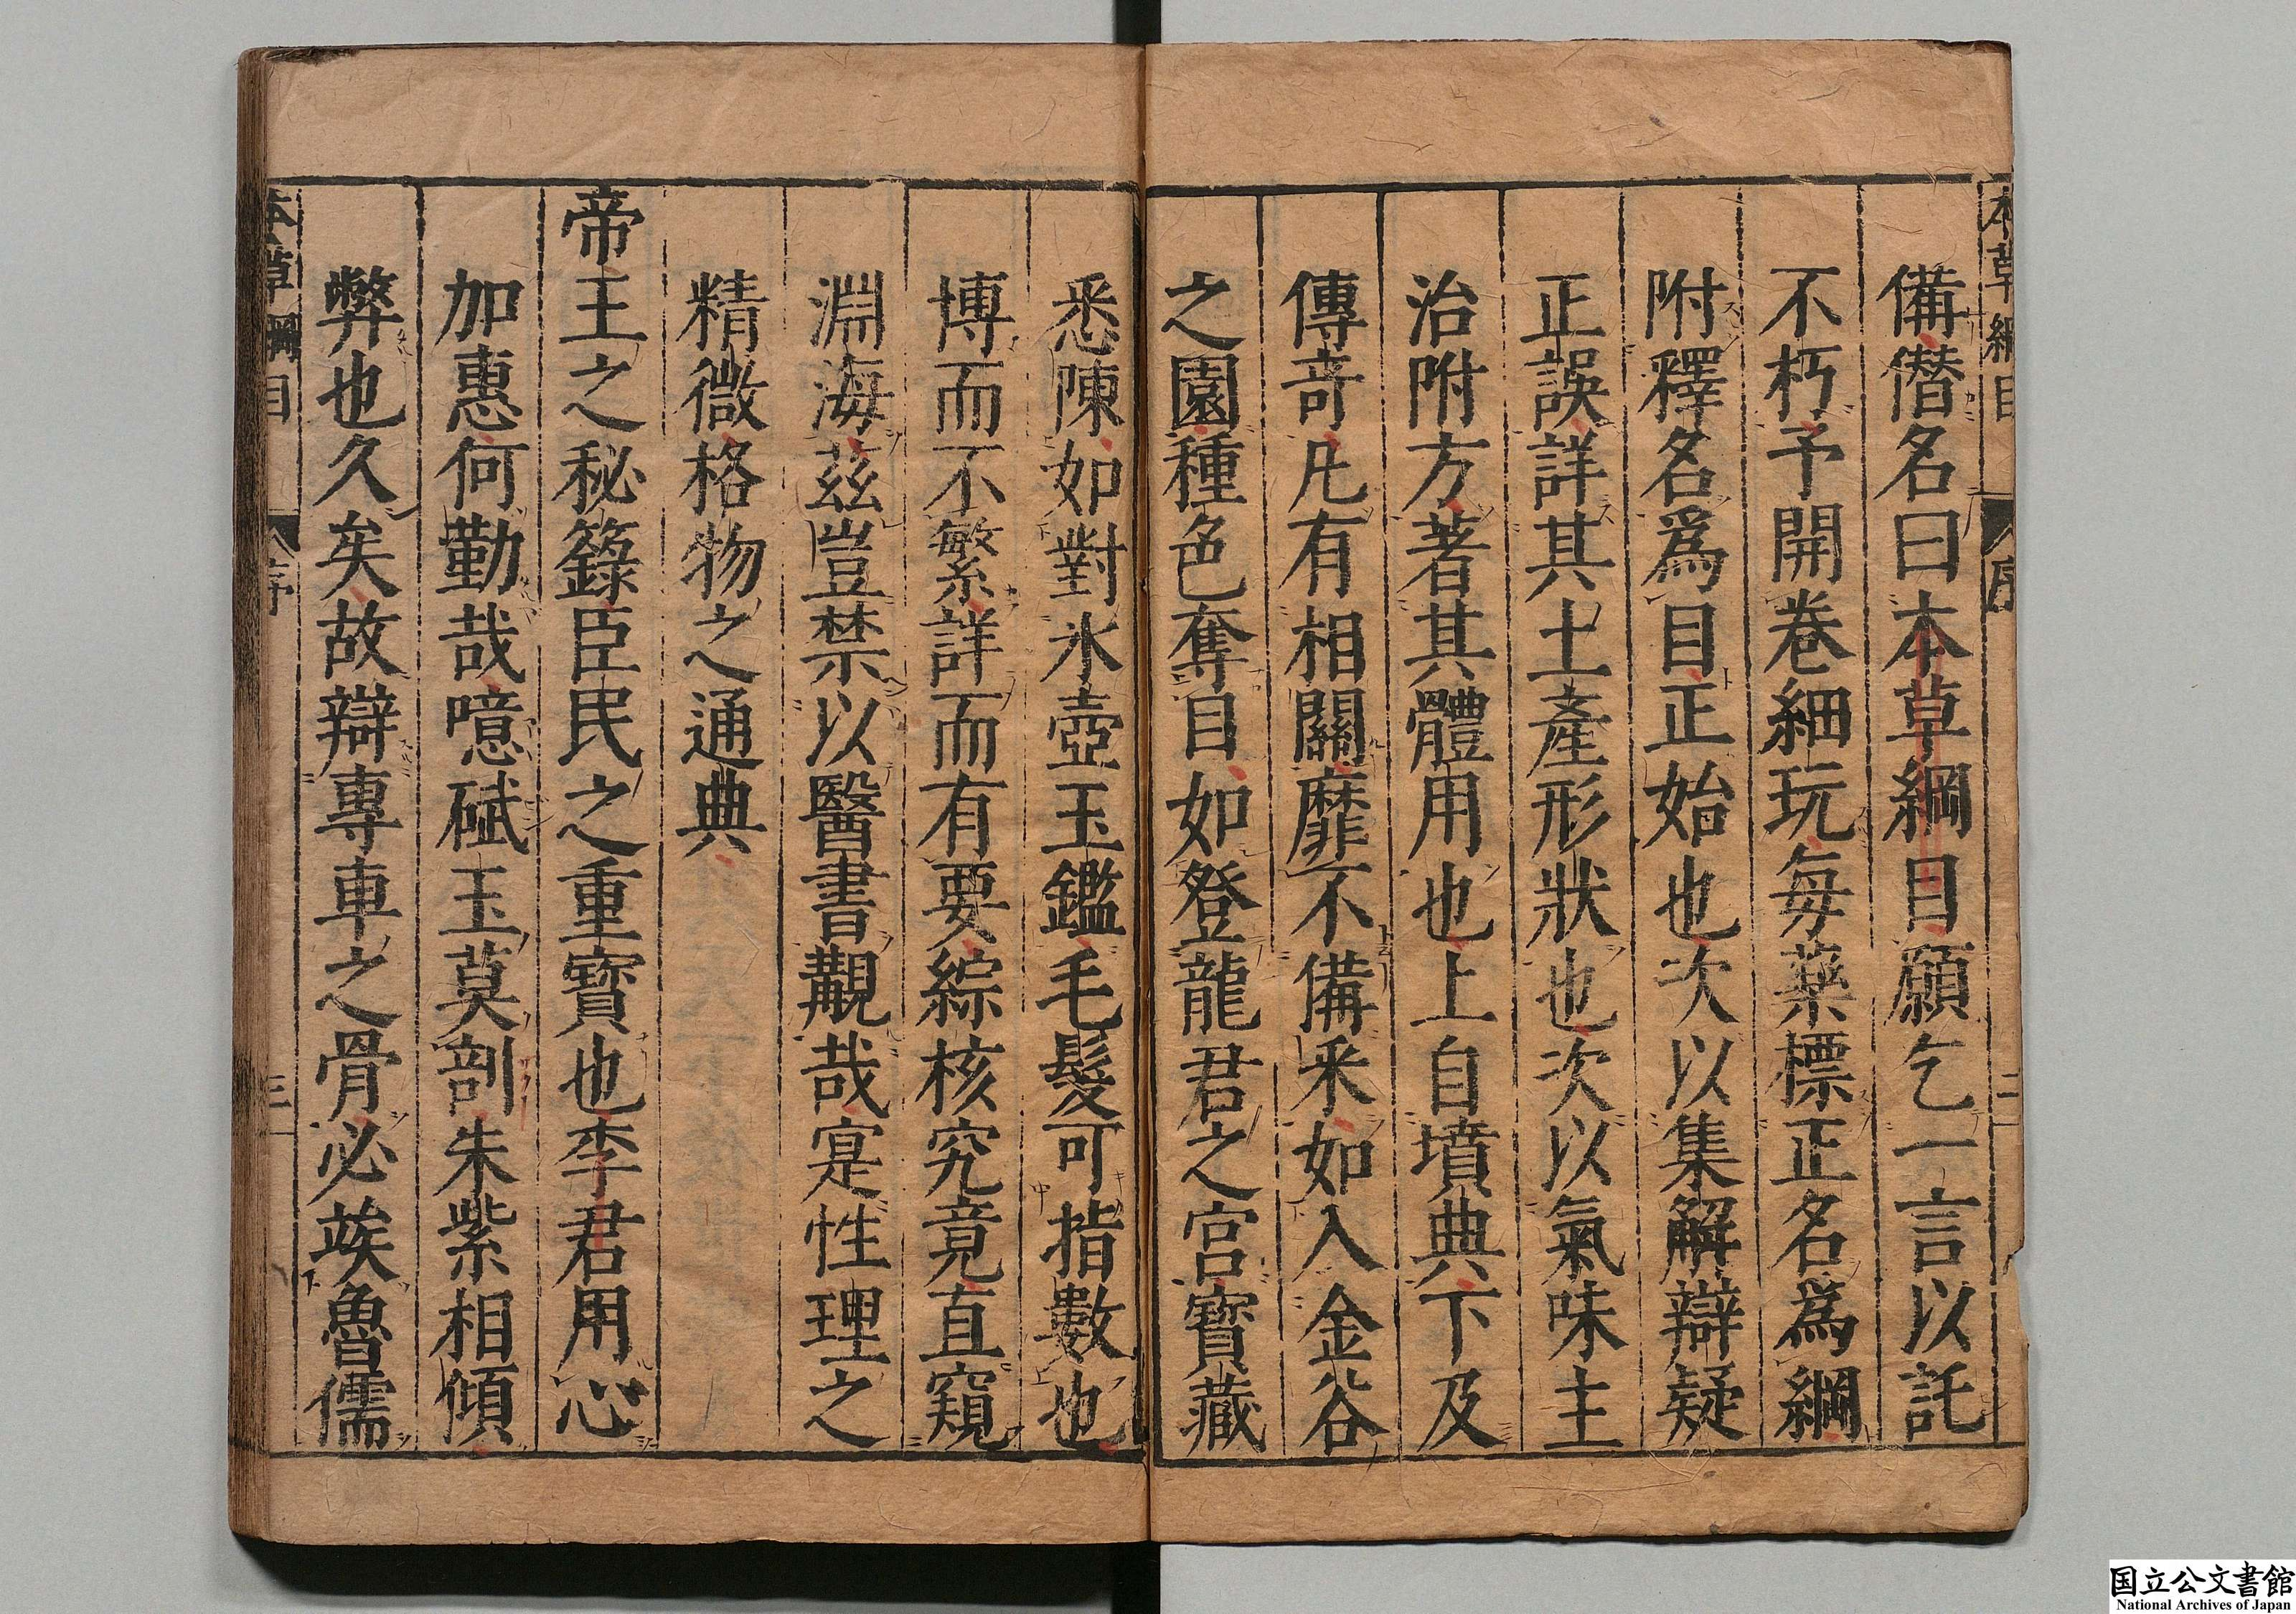 本草綱目 序 二
備僭名曰本草綱目願乞一言以託
不朽予開卷細玩每藥標正名爲綱
附釋名爲目正始也次以集解辯疑
正誤詳其土產形狀也次以氣味主
治附方著其體用也上自墳典下及
傳奇凡有相關靡不備采如入金谷
之園種色奪目如登龍君之宮寶藏
悉陳如對氷壺玉鑑毛髮可指數也
博而不繁詳而有要綜核究竟直窺
淵海茲豈禁以醫書覯哉寔性理之
精微格物之通典
帝王之秘籙臣民之重寶也李君用心
加惠何勤哉噫碔玉莫剖朱紫相傾
弊也久矣故辯專車之骨必竢魯儒
本草綱目 序 三
国立公文書館
National Archives of Japan